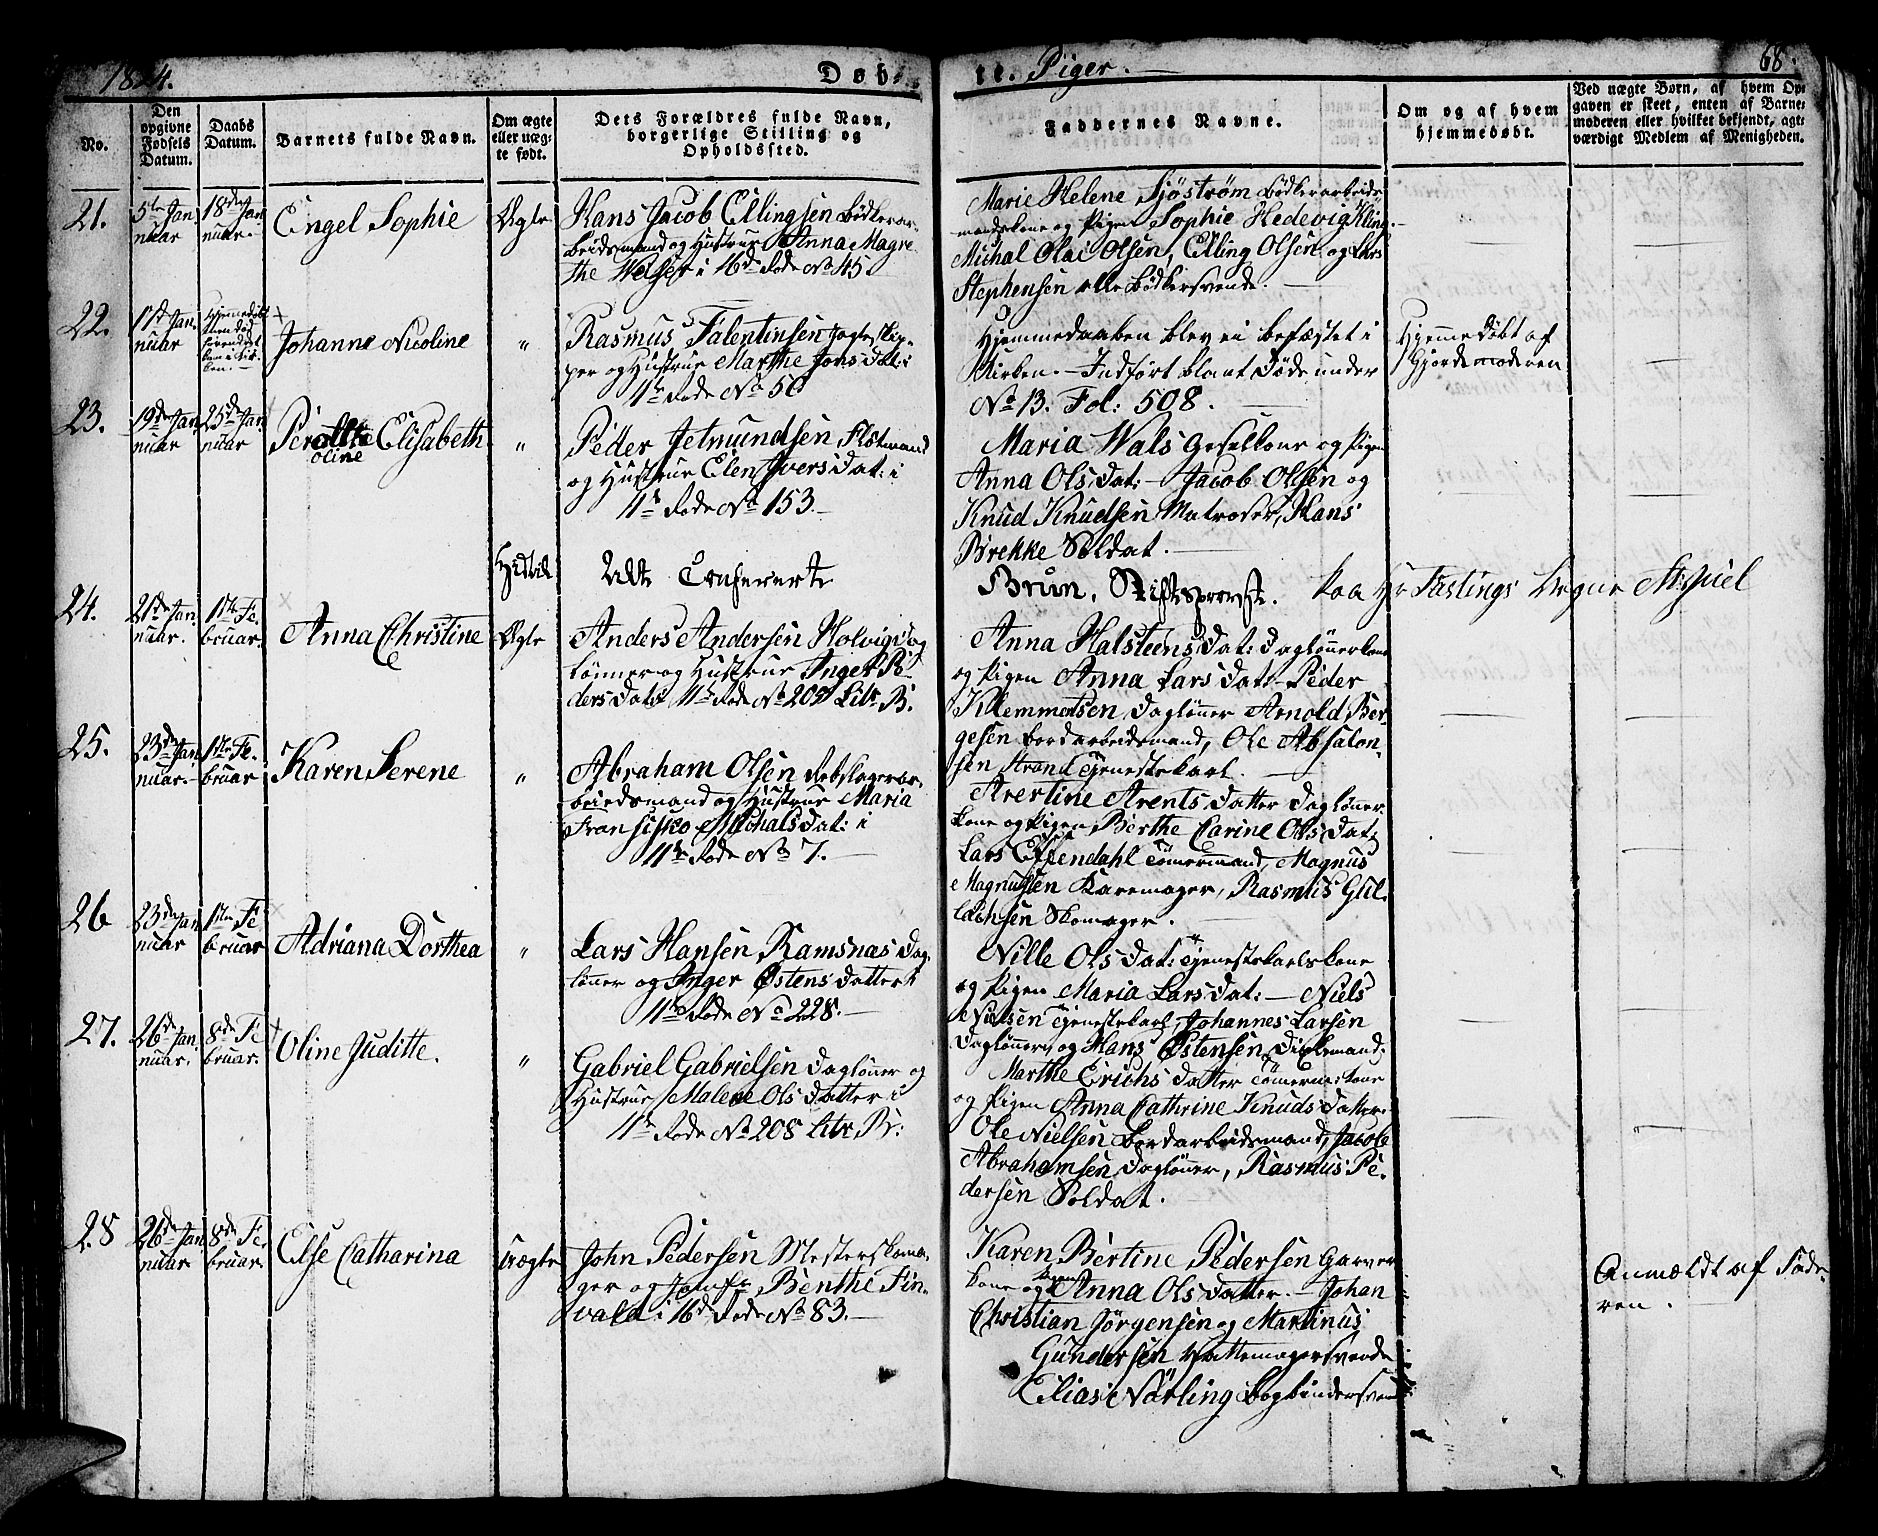 1824.
Døbte. Piger.
68.
No.
Den
opgivne
Fødsels
Datum.
Daabs
Datum.
Barnets fulde Navn.
Om ægte
eller uæg-
te født.
Dets Forældres fulde Navn,
borgerlige Stilling og
Opholdssted.
Faddernes Navne.
Om og af hvem
hjemmedøbt.
Ved uægte Børn, af hvem Op-
gaven er skeet, enten af Barne-
moderen eller hvilket bekjendt, agt-
værdigt Medlem af Menigheden.
21.
5te Jan
nuar
18de Jan
nuar.
Engel Sophie
Ægte
Hans Jacob Ellingsen Bødkerar-
beidsmand og Hustrue Anna Magre-
the Welser i 16de Rode No 45
Marie Helene Sjöström Bødkerarbeids-
mandskone og Pigen Sophie Hedevig Kling.
Michal Olai Olsen, Elling Olsen og Lars
Stephensen alle Bødkersvende.
22.
17de Jan
nuar
Johanne Nicoline
"
Rasmus Falentinsen Jagteskip-
per og Hustrue Marthe Jons Dat: i
11te Rode No 50
Hjemmedaaben blev ei befæstet i
Kirken. - Indført blant Døde under
No 13. Fol: 508.
Hjemmedøbt af
Gjordemoderen
23.
19de Jan
nuar
25de Jan
nuar
Perolline Elisabeth
oline
"
Peder Jetmundsen Flotmand
og Hustrue Elen Ivers Dat: i
11te Rode No 153.
Maria Wals Geselkone og Pigen
Anna Ols Dat: - Jacob Olsen og
Knud Knudsen Matroser, Hans
Brekke Soldat.
Udte Confererte
Brun, Stiftsprovst.
24.
21de Jan
nuar.
1ste Fe
bruar.
Anna Christine
Ægte
Anders Andersen Holvig Dag
lønner og Hustrue Inger Pe-
ders Dat: i 11te Rode No 205 Litr. B.
Anna Halsteens Dat: Dagløнerkone
og Pigen Anna Lars Dat: Peder
Klemmetsen Dagløner Arnold Ber
gesen Bordarbeidsmand, Ole Absalon-
sen Strand Tjenestekarl.
25.
23de Jan
nuar.
1ste Fe-
bruar
Karen Serene
"
Abraham Olsen Rebslagerar-
beidsmand og Hustrue Maria
Fransisko Michals Dat: i
11te Rode No 7.
Avertine Arents Datter Dagløner
kone og Pigen Berthe Carine Ols Dat:
Lars Effendahl Tømermand, Magnus
Magnussen Karemager, Rasmus Gul-
lachsen Skomager.
26
23de Jan
nuar
1ste Fe
bruar
Adriana Dorthea
"
Lars Hansen Ramsnas Dag-
lønner og Inger Østens Datter i
11te Rode No 228.
Nille Ols Dat: Tjenestekarlskone
og Pigen Maria Lars Dat: - Niels
Nielsen Tjenestekarl, Johannes Larsen
Dagløner, og Hans Østensen
27.
26de Jan
nuar.
8de Fe
bruar.
Oline Juditte.
"
Gabriel Gabrielsen Dagløner og
Hustrue Malene Ols Datter i
11te Rode No 208 Litr B:
Marthe Erichs Datter Tømermkone
og Pigen Anna Cathrine Knuds Datter.
Ole Nielsen Bordarbeidsmand, Jacob
Abrahamsen Dagløner, Rasmus Pe-
dersen Soldat.
28
26de Jan
nuar
8de Fe
bruar
Else Catharina
Uægte
John Pedersen Mesterskoma-
ger og Jomfr. Benthe Fin-
vald i 16de Rode No 83.
Karen Bertine Pedersen Garver
kone og Anna Ols Datter. - Johan
Christian Jörgensen og Martinus
Gundersen Hattemagersvende
Elias Nörling Bogbindersvend
Anmældt af Fade-
ren.